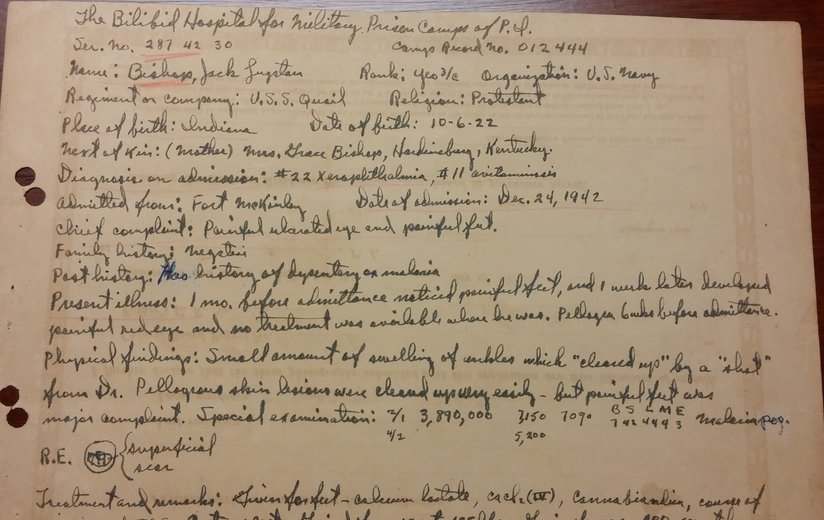 The Bilibid Hospital for Military Prison Camps of P.I.
Ser. No. 287 42 30 Camps Record No. 012444
Name: Bishop, Jack Rank: Yeo3/c Organization: U.S. Navy
Regiment or company: U.S.S. Quail Religion: Protestant
Place of birth: Indiana Date of birth: 10-6-22
Next of kin: (Mother) Mrs. Grace Bishop, Hardinsburg, Kentucky.
Diagnosis on admission: #22 Xerophthalmia, #11 avitaminosis
Admitted from: Fort McKinley Date of admission: Dec. 24, 1942
Chief complaint: Painful ulcerated eye and painful feet.
Family history: Negative
Past history: Has history of dysentery or malaria
Present illness: 1 mo. before admittance noticed painful feet, and 1 week later developed
painful red eye and no treatment was available where he was. Pellagra 6 wks before admittance.
Physical findings: Small amount of swelling of ankles which "cleared up" by a "shot"
from Dr. Pellagrous skin lesions were cleared up very easily - but painful feet was
major complaint. Special examination: 2/1 3,890,000 3150 7090 B S L M E Malaria
4/2 5,200 7 42 44 4 3
R.E. superficial
scar
Treatment and remarks: Given for feet - calcium lactate, (IV), course of